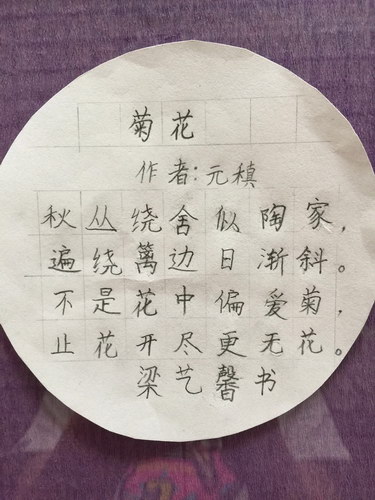 菊花
作者:元稹
秋丛绕舍似陶家,
遍绕篱边日渐斜。
不是花中偏爱菊,
止花开尽更无花。
梁艺馨书